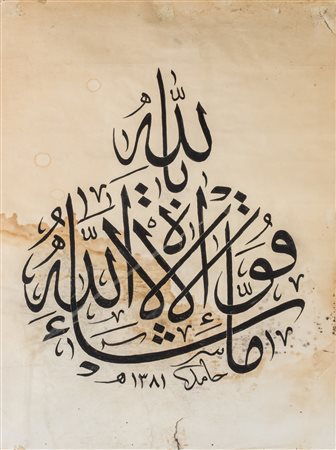 ما شاء الله لا قوة إلا بالله
حامد ١٣٨١ هـ